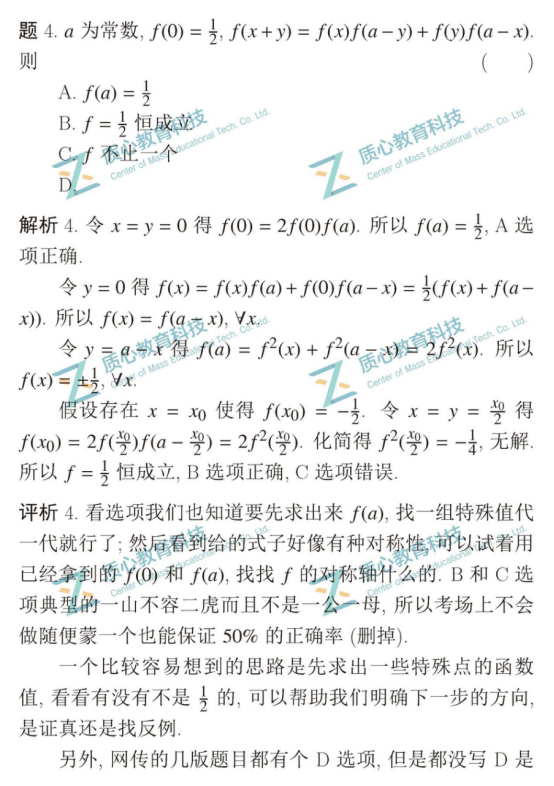 题 4. a 为常数, f(0) = 1/2, f(x + y) = f(x)f(a − y) + f(y)f(a − x).
则 ( )
A. f(a) = 1/2
B. f = 1/2 恒成立
C. f 不止一个
D.
解析 4. 令 x = y = 0 得 f(0) = 2f(0)f(a). 所以 f(a) = 1/2, A 选
项正确.
令 y = 0 得 f(x) = f(x)f(a) + f(0)f(a − x) = 1/2(f(x) + f(a −
x)). 所以 f(x) = f(a − x), ∀x.
令 y = a − x 得 f(a) = f²(x) + f²(a − x) = 2f²(x). 所以
f(x) = ±1/2, ∀x.
假设存在 x = x₀ 使得 f(x₀) = −1/2. 令 x = y = x₀/2 得
f(x₀) = 2f(x₀/2)f(a − x₀/2) = 2f²(x₀/2). 化简得 f²(x₀/2) = −1/4, 无解.
所以 f = 1/2 恒成立, B 选项正确, C 选项错误.
评析 4. 看选项我们也知道要先求出来 f(a), 找一组特殊值代
一代就行了; 然后看到给的式子好像有种对称性, 可以试着用
已经拿到的 f(0) 和 f(a), 找找 f 的对称轴什么的. B 和 C 选
项典型的一山不容二虎而且不是一公一母, 所以考场上不会
做随便蒙一个也能保证 50% 的正确率 (删掉).
一个比较容易想到的思路是先求出一些特殊点的函数
值, 看看有没有不是 1/2 的, 可以帮助我们明确下一步的方向,
是证真还是找反例.
另外, 网传的几版题目都有个 D 选项, 但是都没写 D 是
质心教育科技
Center of Mass Educational Tech. Co. Ltd.
质心教育科技
Center of Mass Educational Tech. Co. Ltd.
质心教育科技
Center of Mass Educational Tech. Co. Ltd.
质心教育科技
Center of Mass Educational Tech. Co. Ltd.
质心教育科技
Center of Mass Educational Tech. Co. Ltd.
质心教育科技
Center of Mass Educational Tech. Co. Ltd.